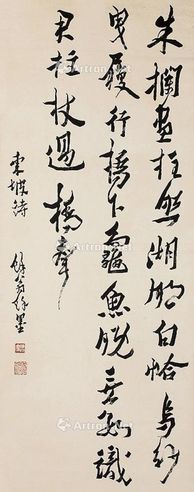 朱欄畫柱照湖明白帢烏紗
曳履行橋下龜魚晚無數識
君拄杖過橋聲
東坡詩
Artron.Net